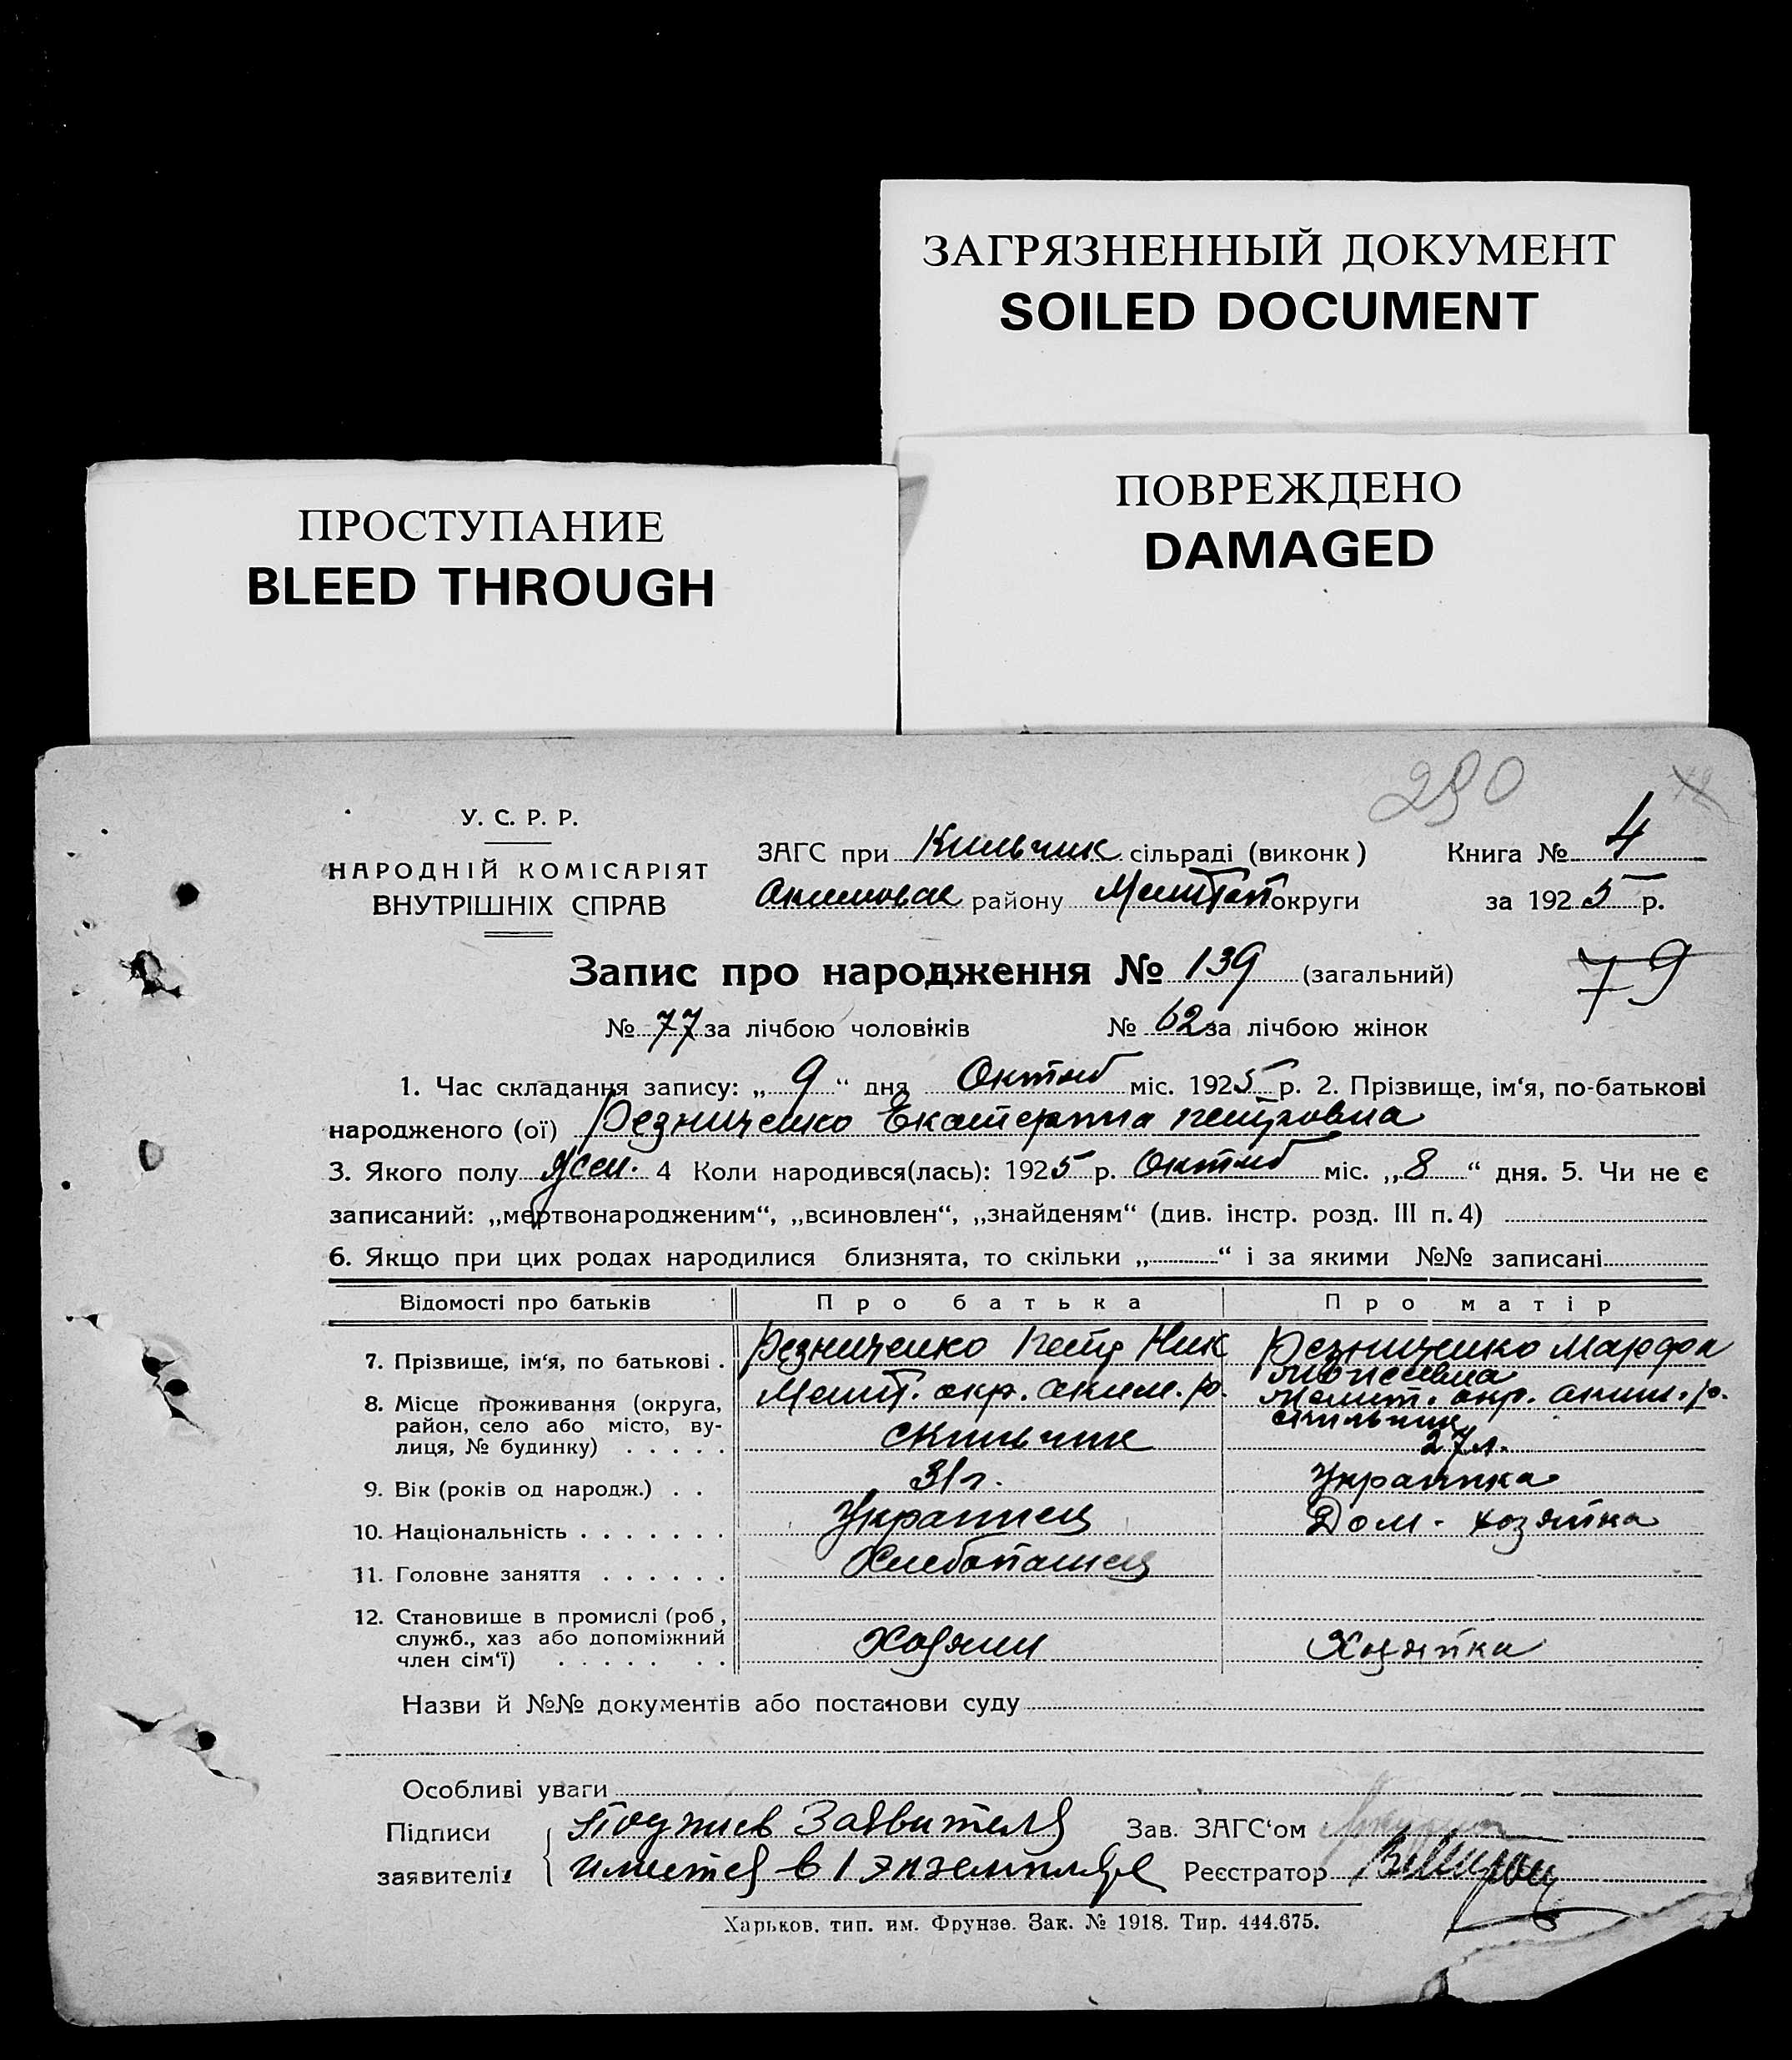 ЗАГРЯЗНЕННЫЙ ДОКУМЕНТ
SOILED DOCUMENT
ПОВРЕЖДЕНО
DAMAGED
ПРОСТУПАНИЕ
BLEED THROUGH
290
У. С. Р. Р.
НАРОДНІЙ КОМІСАРІЯТ
ВНУТРІШНІХ СПРАВ
ЗАГС при Кильчик сільраді (виконк) Книга № 4
Акимовск району Мелитоп округи за 1925 р.
Запис про народження № 139 (загальний)
79
№ 77 за лічбою чоловіків № 62 за лічбою жінок
1. Час складання запису: „ 9 “ дня Октяб міс. 1925 р. 2. Прізвище, ім‘я, по-батькові
народженого (ої) Резниченко Екатерина Петровна
3. Якого полу жен. 4 Коли народився(лась): 1925 р. Октяб міс. „ 8 “ дня. 5. Чи не є
записаний: „мертвонародженим“, „всиновлен“, „знайденям“ (див. інстр. розд. III п. 4)
6. Якщо при цих родах народилися близнята, то скільки „ “ і за якими №№ записані
Відомості про батьків Про батька Про матір
7. Прізвище, ім‘я, по батькові . Резниченко Петр Ник Резниченко Марфа
Моисеевна
8. Місце проживання (округа, Мелит. окр. Аким. р. Мелит. окр. Аким. р.
район, село або місто, ву-
лиця, № будинку) . . . . . с Кильчик 27 л.
9. Вік (років од народж.) . . 31 г. Украинка
10. Національність . . . . . . . Украинец Дом. хозяйка
11. Головне заняття . . . . . . Хлебопашец
12. Становище в промислі (роб,
служб., хаз або допоміжний
член сім‘ї) . . . . . . . Хозяин Хозяйка
Назви й №№ документів або постанови суду
Особливі уваги
Підписи Подпись Заявителя Зав. ЗАГС‘ом
заявителів имеется в 1 экземпляре Реєстратор
Харьков. тип. им. Фрунзе. Зак. № 1918. Тир. 444.675.